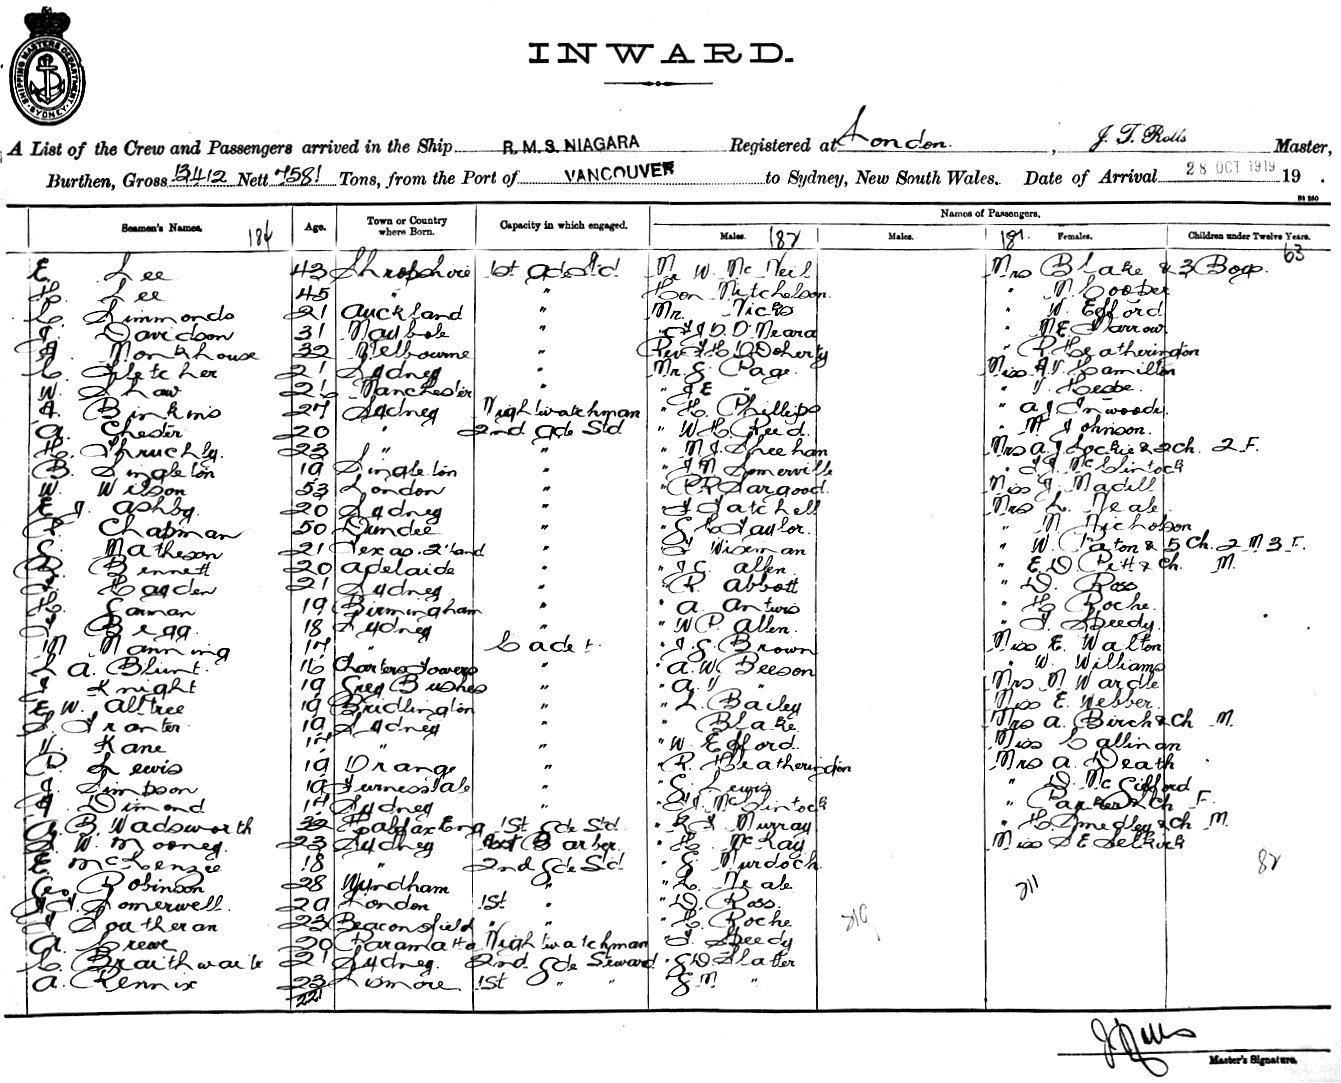 SHIPPING MASTERS DEPARTMENT SYDNEY
INWARD.
A List of the Crew and Passengers arrived in the Ship R.M.S. NIAGARA Registered at London. , J. T. Rolls Master,
Burthen, Gross 13412 Nett 7581 Tons, from the Port of VANCOUVER to Sydney, New South Wales. Date of Arrival 28 OCT 1919 19 .
Seamen's Names. Age. Town or Country where Born. Capacity in which engaged. Names of Passengers.
184 Males. 182 Males. 181 Females. Children under Twelve Years.
63
E. Lee 43 Shropshire 1st gde Std Mr W. McNeil Mrs Blake & 3 Boys.
H. Lee 45 " " Hon Mitchelson " M Cooper
C. Simmonds 21 Auckland " Mr. Hicks " W. Efford
J. Davidson 31 Maybole " " " M E Farrow
A. Monkhouse 32 Melbourne " Rev O'Doherty " R Heatherington
C. Fletcher 21 Sydney " Mr G Page Miss Hamilton
W. Shaw 21 Manchester " " J E " " Hesse
A. Binkins 27 Sydney Nightwatchman " H. Phillips " A J Inwood
A. Chester 20 " 2nd gde Std " W H Reed " M Johnson.
H. Thruchly. 23 " " " M J Sheehan Mrs A J Lockie & 2 Ch. 2 F.
B. Singleton 19 Singleton " " J M Somerville " McClintock
W. Wilson 53 London " " P R Sargood. Miss J Madill
E J Ashby 20 Sydney " " J Tatchell Mrs L Neale
P. Chapman 50 Dundee " " G C Taylor. " M Nicholson
G. Matheson 21 Texas. Q'land " " G Wiseman " W. Paton & 5 Ch. 2 M 3 F.
R. Bennett 20 Adelaide " " J G Allen " E D Pitt & Ch. M.
J. Hayden 21 Sydney " " R Abbott " D. Ross
H. Garman 19 Birmingham " " A. " H Roche.
J. Begg. 18 Sydney " " W P. Allen. " J. Speedy.
M Manning 17 " Cadet. " J. G Brown Miss E. Walton
L. A. Blunt. 16 Charters Towers " " A. W. Beeson " W. Williams
J Knight 19 Bushes " " A. V " Mrs M Wardle
E. W. Alltree 19 Bridlington " " L. Bailey Miss E. Webber.
S. Tranter 19 Sydney " " Blake Mrs A. Birch & Ch M.
V. Kane 17 " " " W Efford. Miss Callinan
D. Lewis 19 Orange " " R. Heatherington Mrs A. Death
J. Simpson 19 " " G Lewis " D. McGifford
A. Dimond 17 Sydney " " McClintock " Parker & Ch F.
A. B. Wadsworth 32 Halifax Eng 1st Gde Std. " Murray " H Smedley & Ch M.
W. Mooney 23 Sydney Asst Barber. " H. McKay Miss S E Selkirk
E. McKenzie 18 " 2nd Gde Std " G Murdoch.
Geo Robinson 28 Wyndham " " L. Neale
Somerwell. 29 London 1st " " D. Ross.
J Sotheran 23 Beaconsfield " " " H. Roche
A. Crewe 20 Paramatta Nightwatchman " J. Speedy
C. Braithwaite 21 Sydney. 2nd Gde Steward " G D Slatter
A. Rennix 23 Lismore 1st " " " G M "
221 210 211 82
J Rolls
Master's Signature.